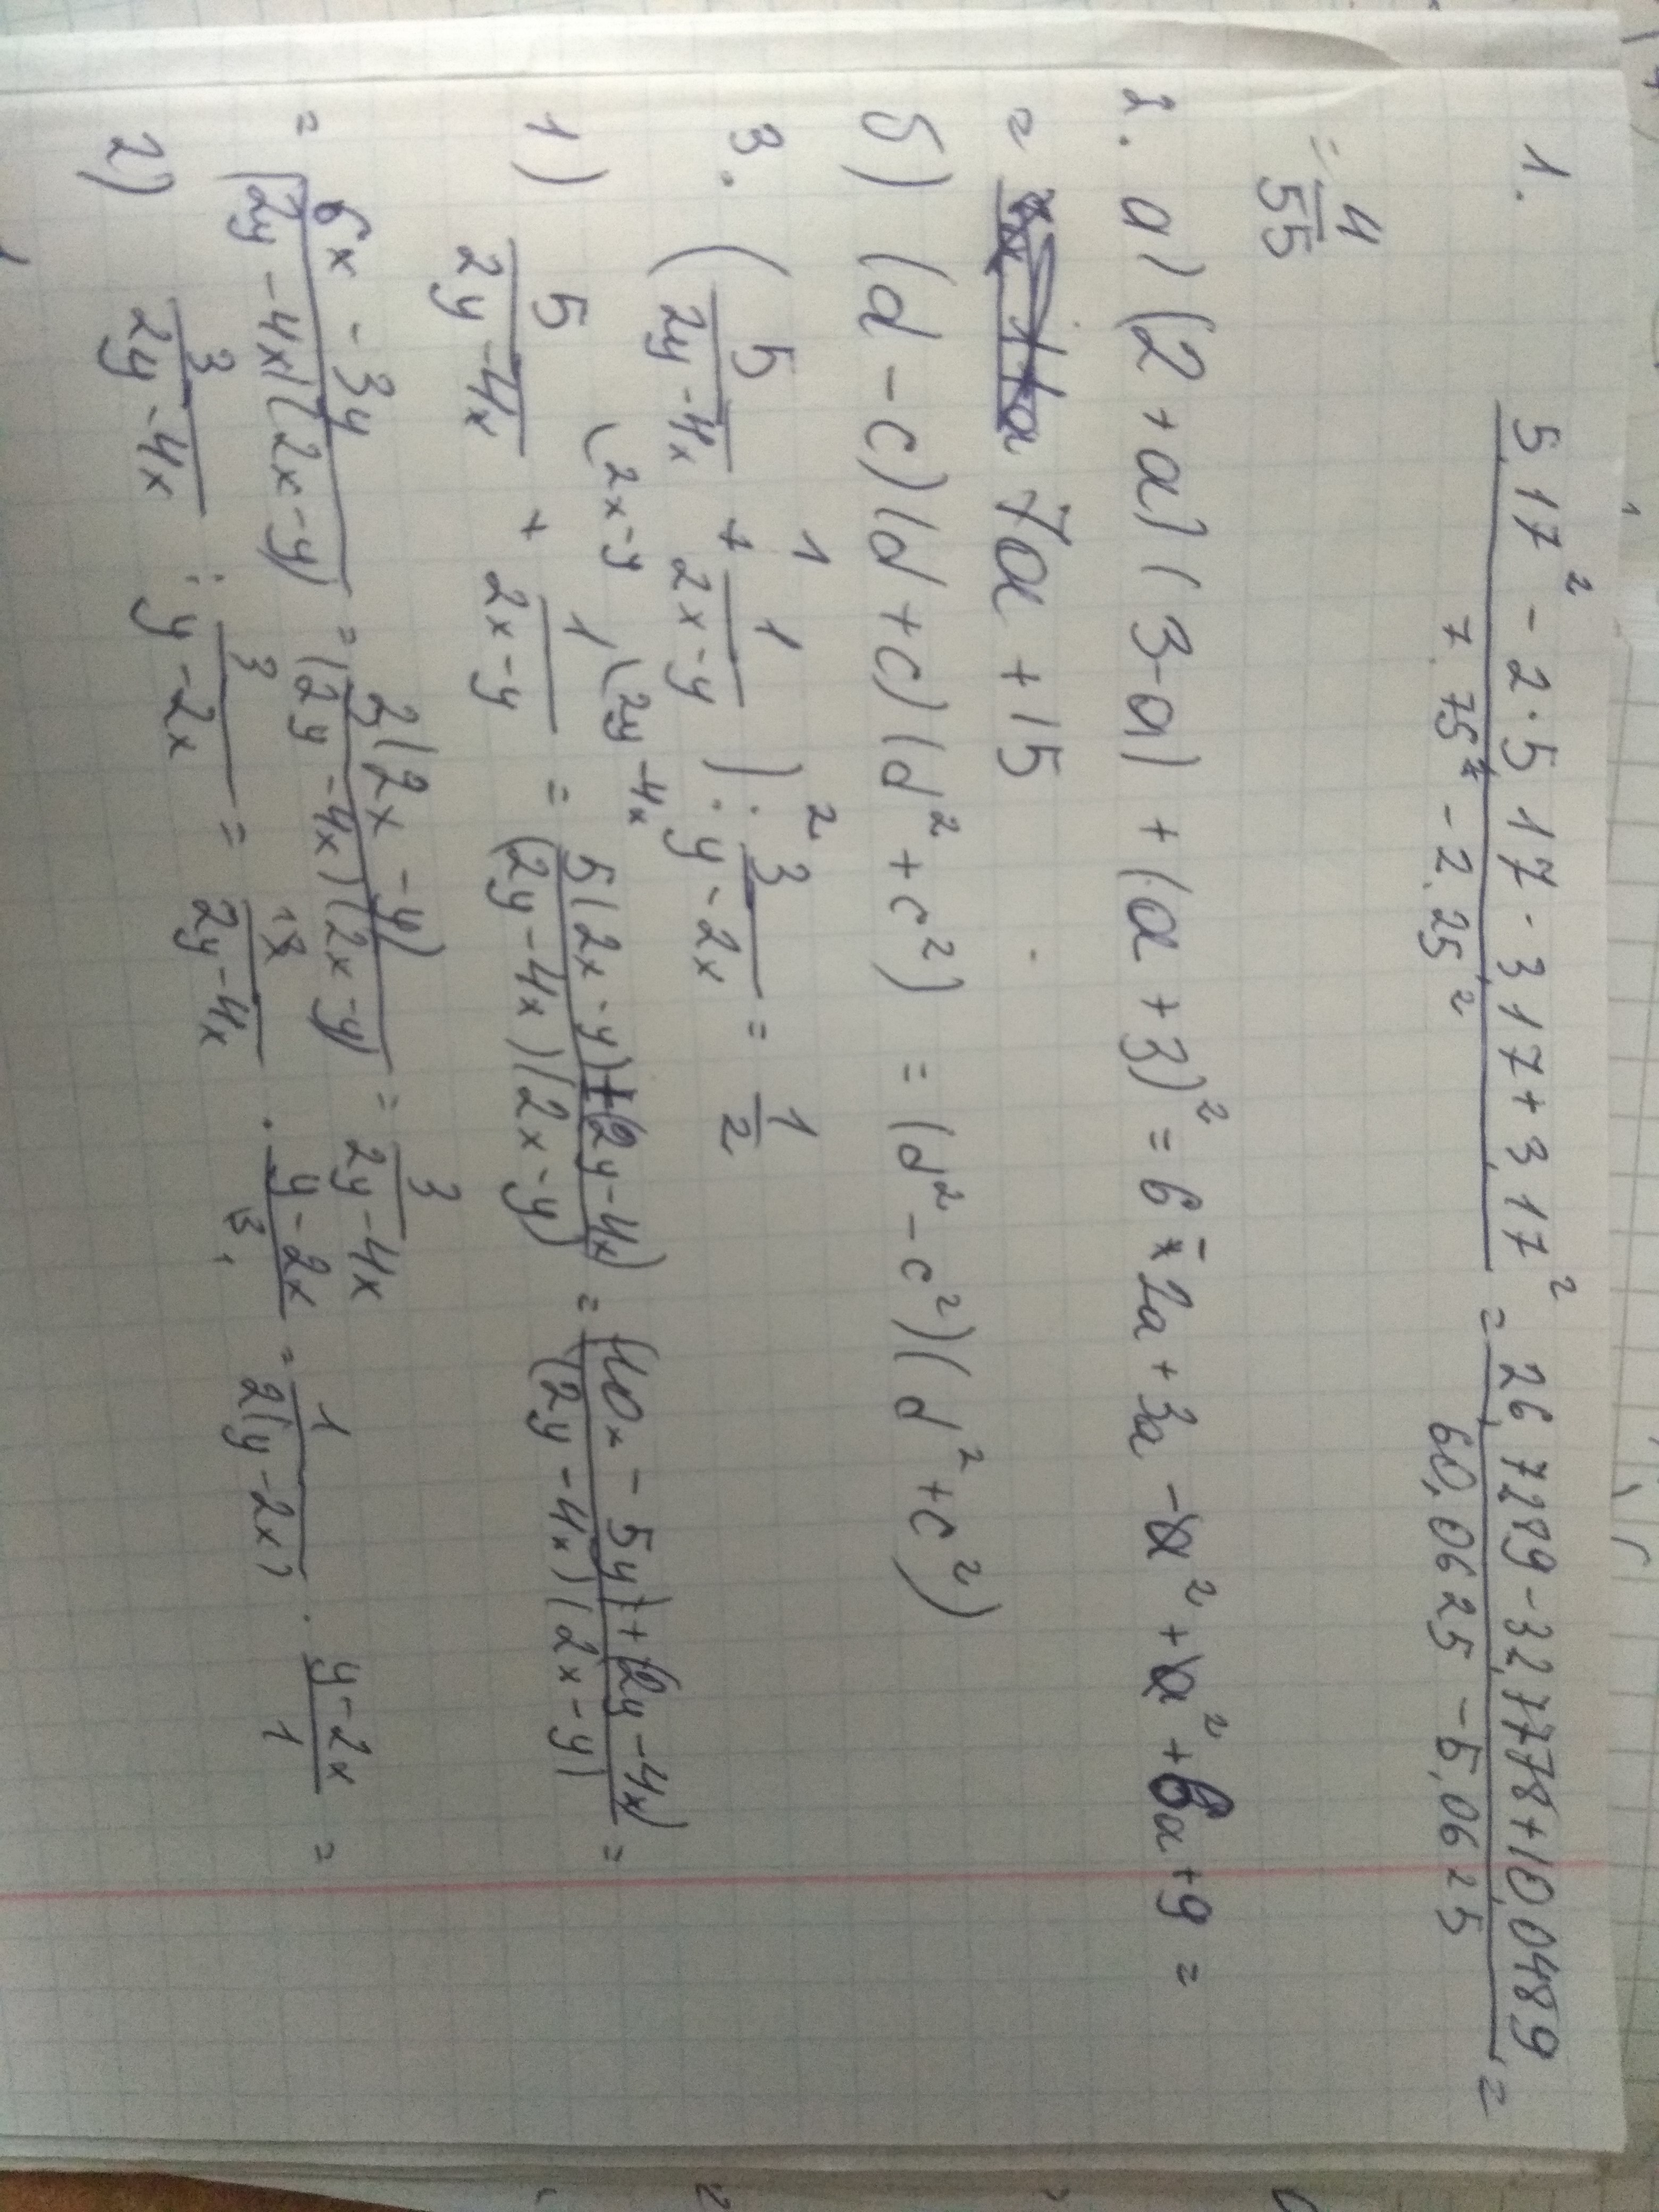 1. (5,17² - 2·5,17·3,17 + 3,17²)/(7,75² - 2,25²) = (26,7289 - 32,7778 + 10,0489)/(60,0625 - 5,0625) =
= 4/55
2. а) (2+a)(3-a) + (a+3)² = 6 - 2a + 3a - a² + a² + 6a + 9 =
= 7a + 15
б) (d-c)(d+c)(d²+c²) = (d²-c²)(d²+c²)
1 2
3. (5/(2y-4x) + 1/(2x-y)) : 3/(y-2x) = 1/2
(2x-y (2y-4x
1) 5/(2y-4x) + 1/(2x-y) = (5(2x-y)+(2y-4x))/((2y-4x)(2x-y)) = ((10x-5y)+(2y-4x))/((2y-4x)(2x-y)) =
= (6x-3y)/((2y-4x)(2x-y)) = 3(2x-y)/((2y-4x)(2x-y)) = 3/(2y-4x)
2) 3/(2y-4x) : 3/(y-2x) = 3/(2y-4x) · (y-2x)/3 = 1/(2(y-2x)) · (y-2x)/1 =